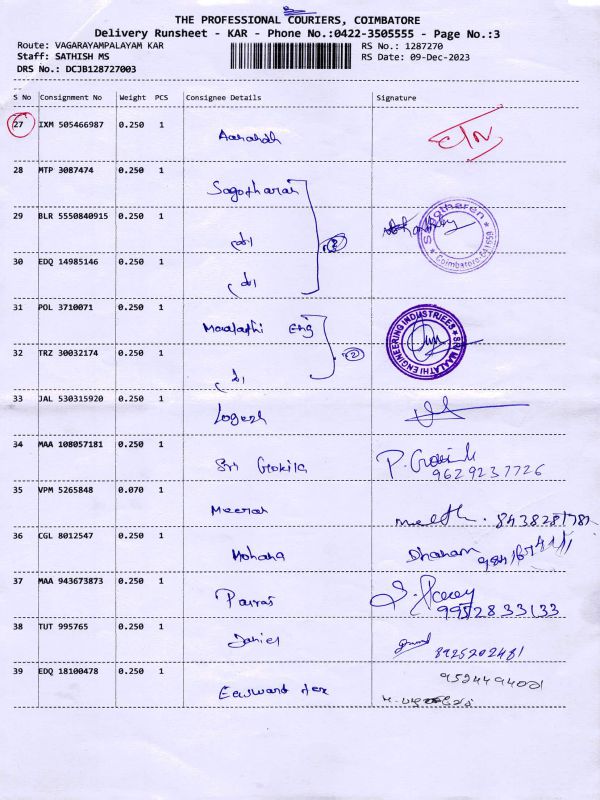 THE PROFESSIONAL COURIERS, COIMBATORE
Delivery Runsheet - KAR - Phone No.:0422-3505555 - Page No.:3
Route: VAGARAYAMPALAYAM KAR RS No.: 1287270
Staff: SATHISH MS RS Date: 09-Dec-2023
DRS No.: DCJB128727003
S No Consignment No Weight PCS Consignee Details Signature
27 IXM 505466987 0.250 1
28 MTP 3087474 0.250 1
29 BLR 5550840915 0.250 1
30 EDQ 14985146 0.250 1
31 POL 3710071 0.250 1 Maalathi Eng
32 TRZ 30032174 0.250 1
SRI MAALATHI ENGINEERING INDUSTRIES
33 JAL 530315920 0.250 1 Logesh
34 MAA 108057181 0.250 1 Sri Gokila
9629237726
35 VPM 5265848 0.070 1 Meerah
36 CGL 8012547 0.250 1 Mohana Dhanam
37 MAA 943673873 0.250 1
9952833133
38 TUT 995765 0.250 1 Daniel
8925202481
39 EDQ 18100478 0.250 1